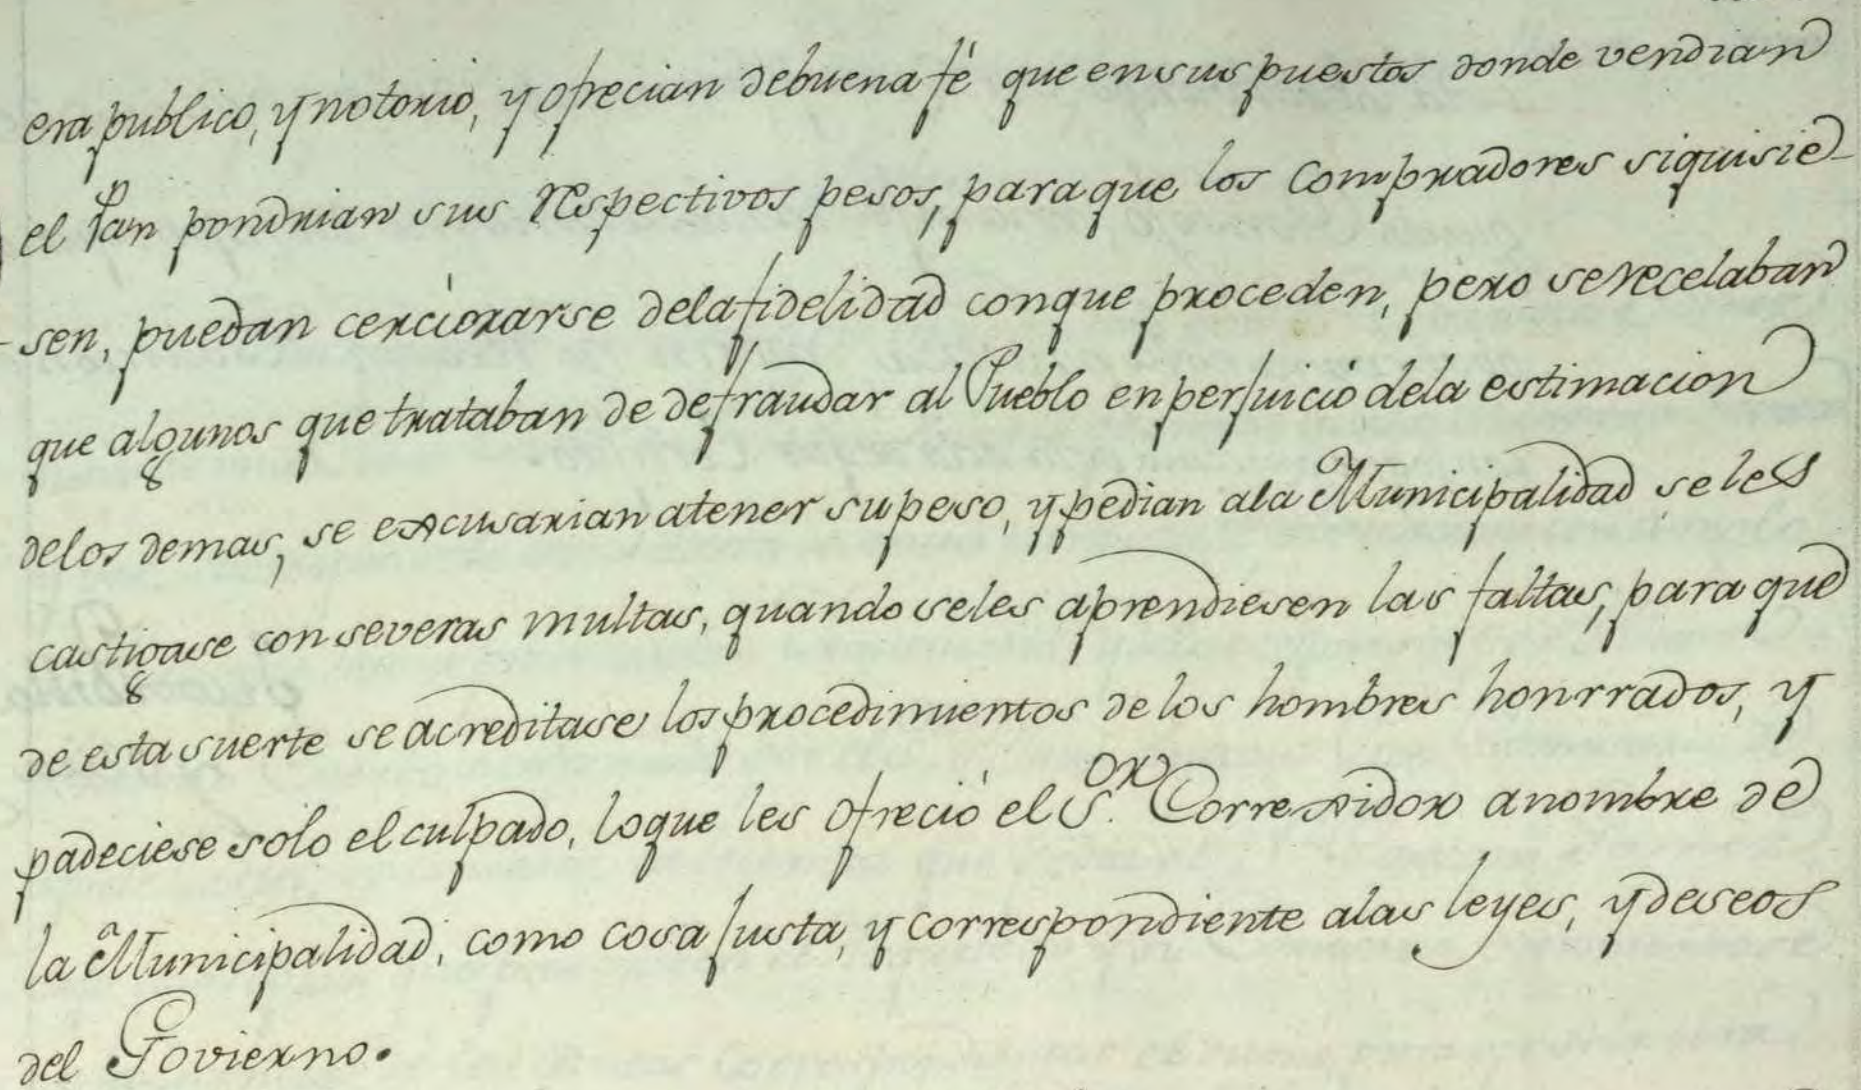 era publico, y notorio, y ofrecian debuena fé que ensus puestos donde vendian
el Pan pondrian sus respectivos pesos, para que los Compradores siquisie-
-sen, puedan cerciorarse dela fidelidad conque proceden, pero se recelaban
que algunos que trataban de defraudar al Pueblo en perjuicio dela estimacion
delos demas, se excusarian atener su peso, y pedian ala Municipalidad se les
castigase con severas multas, quando seles aprendiesen las faltas, para que
de esta suerte se acreditase los procedimientos de los hombres honrrados, y
padeciese solo el culpado, loque les ofreció el S.or Corregidor anombre de
la Municipalidad, como cosa justa, y correspondiente alas leyes, y deseos
del Govierno.